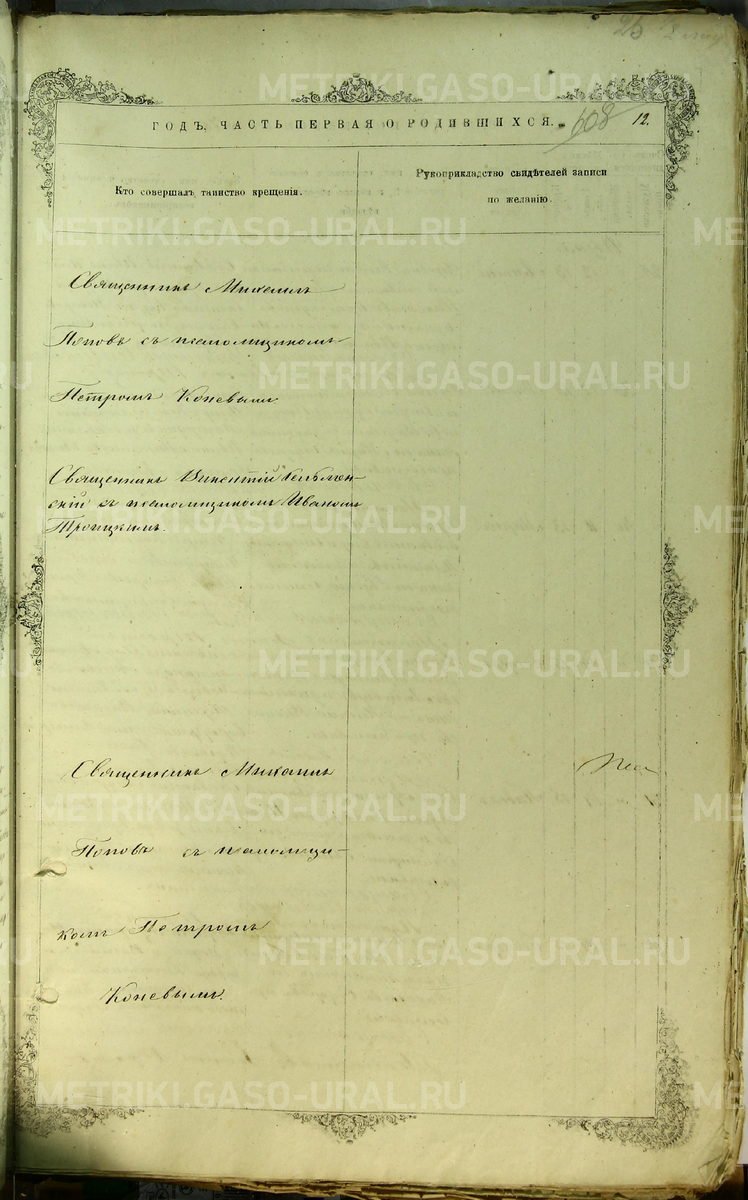 ГОДЪ, ЧАСТЬ ПЕРВАЯ О РОДИВШИХСЯ.
608
12.
Кто совершалъ таинство крещенія.
Рукоприкладство свидѣтелей записи
по желанію.
Священникъ Михаилъ
Поповъ съ псаломщикомъ
Петромъ Коневымъ.
Священникъ Викентій
скій съ псаломщикомъ Иваномъ
Троицкимъ.
Священникъ Михаилъ
Поповъ съ псаломщи-
комъ Петромъ
Коневымъ.
METRIKI.GASO-URAL.RU